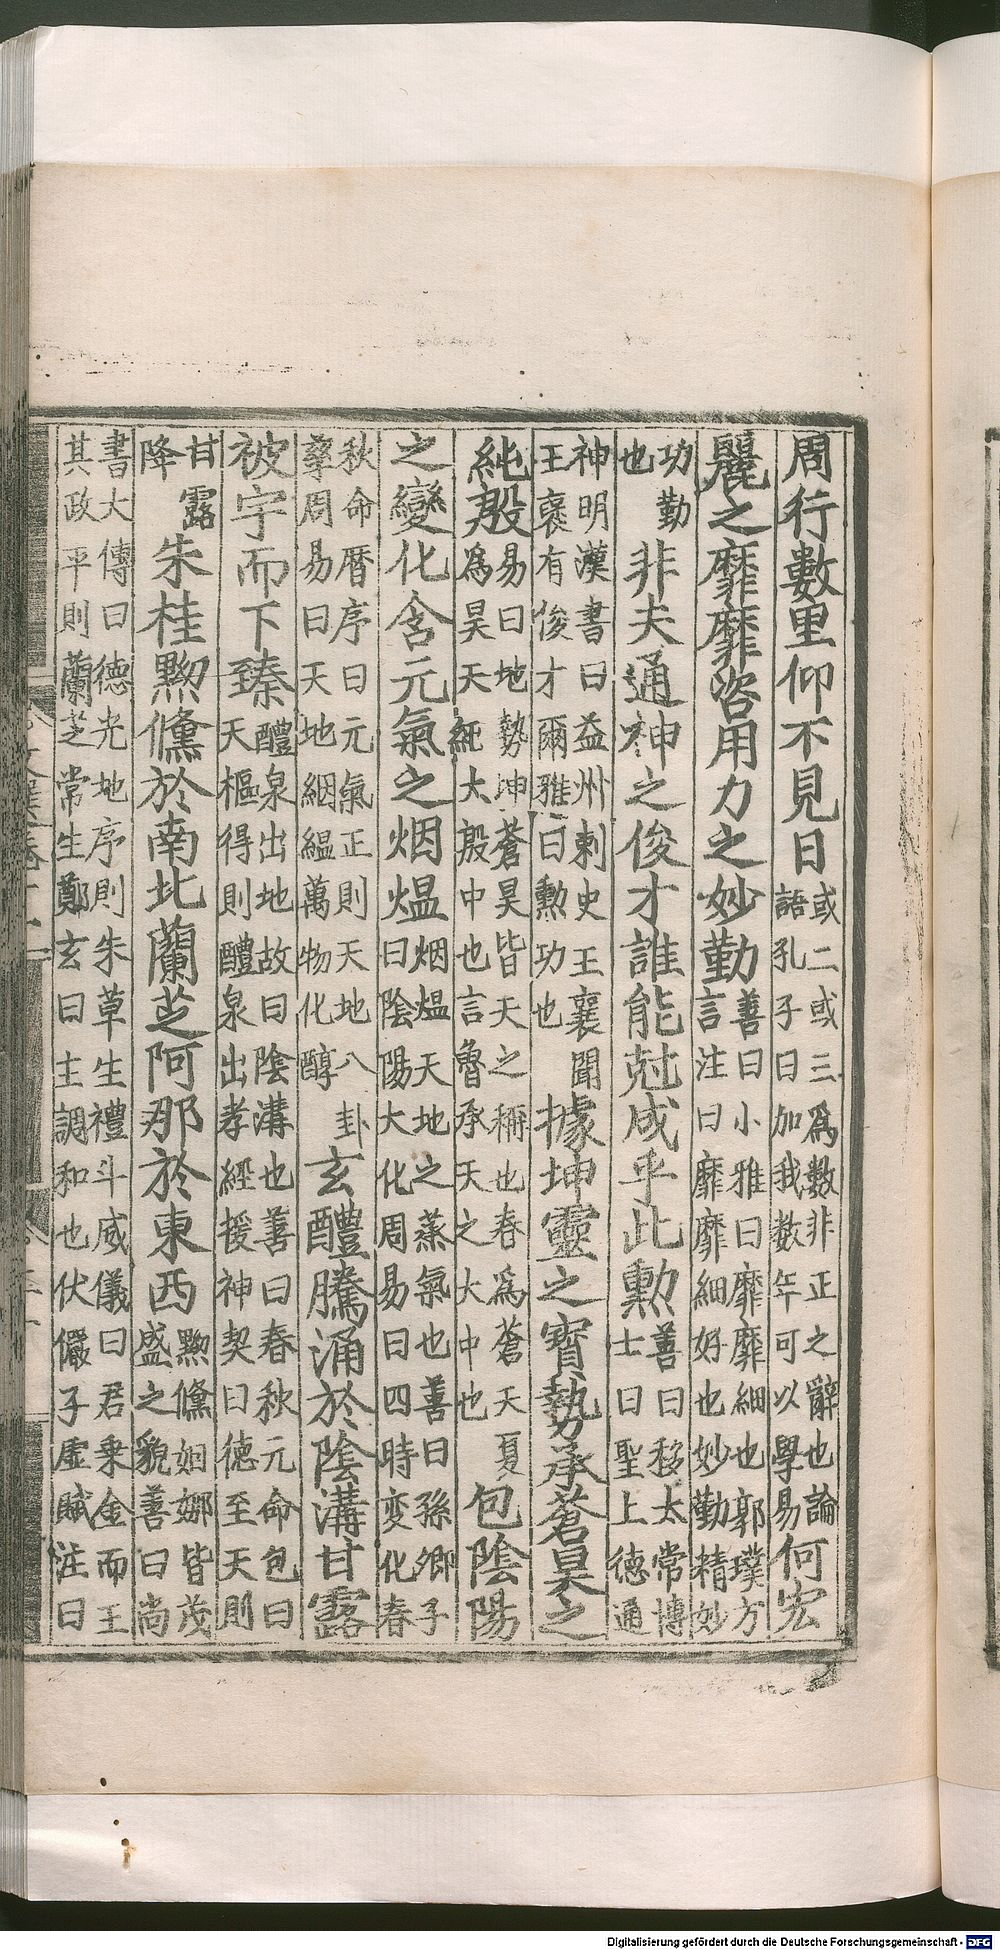 周行數里仰不見日或二或三爲數非正之辭也論語孔子曰加我數年可以學易何宏
麗之靡靡咨用力之妙勤善曰小雅曰靡靡細也郭璞方言注曰靡靡細好也妙勤精妙
功勤也非夫通神之俊才誰能尅成乎此勳善曰移太常博士曰聖上德通
神明漢書曰益州刺史王襄聞王襃有俊才爾雅曰勳功也據坤靈之寶勢承蒼昊之
純殷易曰地勢坤蒼昊皆天之稱也春爲蒼天夏爲昊天純大殷中也言魯承天之大中也包陰陽
之變化含元氣之烟熅烟熅天地之蒸氣也善曰孫卿子曰陰陽大化周易曰四時変化春
秋命暦序曰元氣正則天地八卦孳周易曰天地絪緼萬物化醇玄醴騰涌於陰溝甘露
被宇而下臻醴泉出地故曰陰溝也善曰春秋元命包曰天樞得則醴泉出孝經援神契曰德至天則
甘露降朱桂黝儵於南北蘭芝阿那於東西黝儵婀娜皆茂盛之貌善曰尚
書大傳曰德光地序則朱草生禮斗威儀曰君乗金而王其政平則蘭芝常生鄭玄曰主調和也伏儼子虚賦注曰
Digitalisierung gefördert durch die Deutsche Forschungsgemeinschaft - DFG